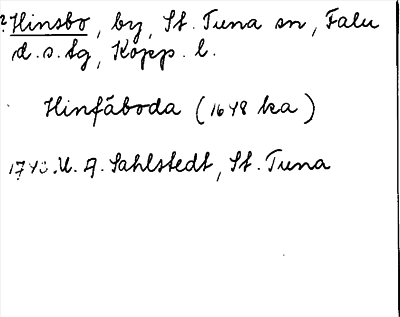 ? Hinsbo, by, St. Tuna sn, Falu
d. s. tg, Kopp. l.
Hinfäboda (1648 ka)
U. A. Sahlstedt, St. Tuna